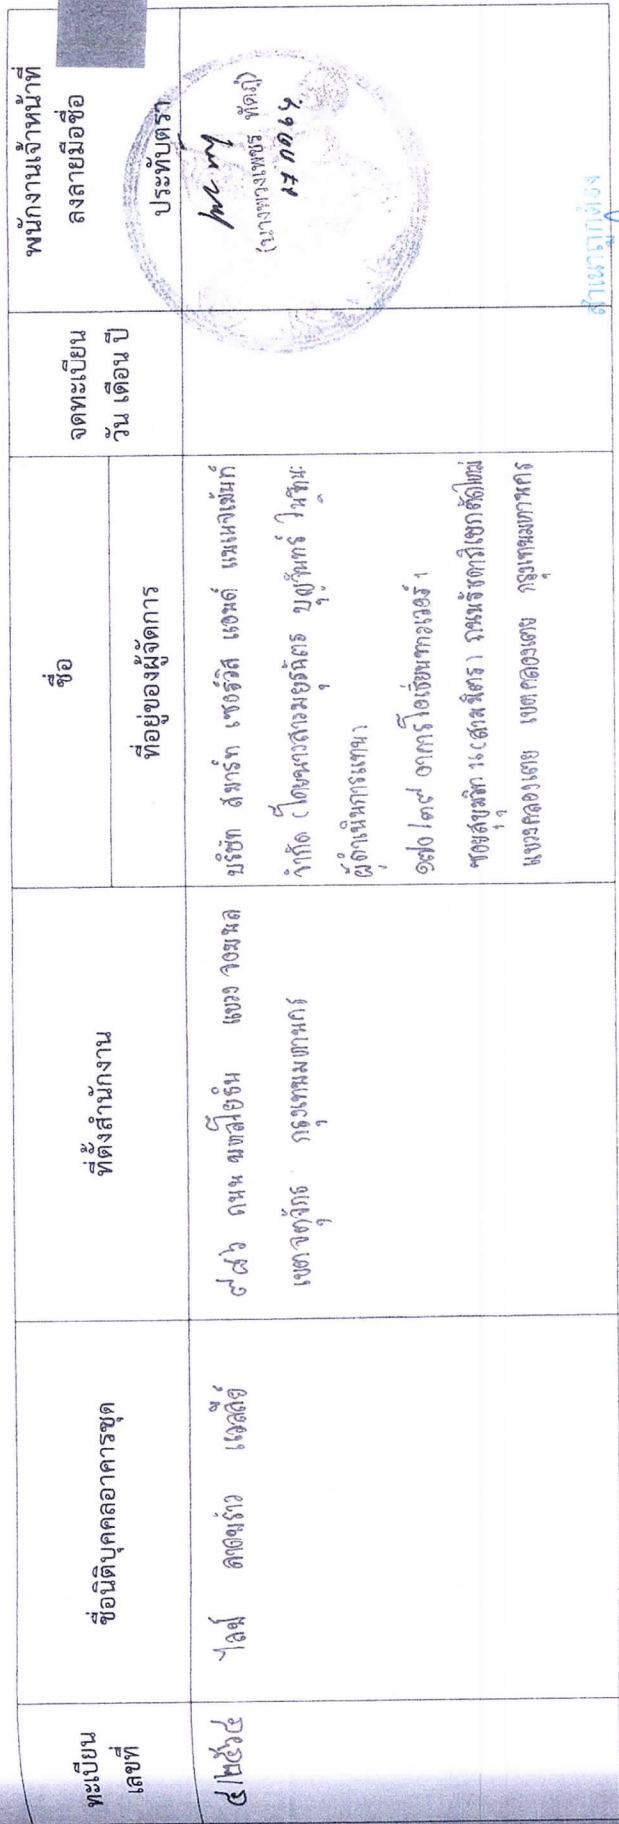 ทะเบียน
เลขที่
ชื่อนิติบุคคลอาคารชุด
ที่ตั้งสำนักงาน
ชื่อ
ที่อยู่ของผู้จัดการ
จดทะเบียน
วัน เดือน ปี
พนักงานเจ้าหน้าที่
ลงลายมือชื่อ
ประทับตรา
๔/๒๕๖๔
ไลฟ์ ลาดพร้าว แวลลีย์
๙๘๖ ถนน พหลโยธิน แขวง จอมพล
เขตจตุจักร กรุงเทพมหานคร
บริษัท สมาร์ท เซอร์วิส แอนด์ แมเนจเม้นท์
จำกัด (โดยนางสาวมยุรฉัตร
ผู้ดำเนินการแทน)
อาคารโอเชี่ยนทาวเวอร์ 1
ซอยสุขุมวิท 16 (สามมิตร) ถนนรัชดาภิเษกตัดใหม่
แขวงคลองเตย เขตคลองเตย กรุงเทพมหานคร
สำเนาถูกต้อง